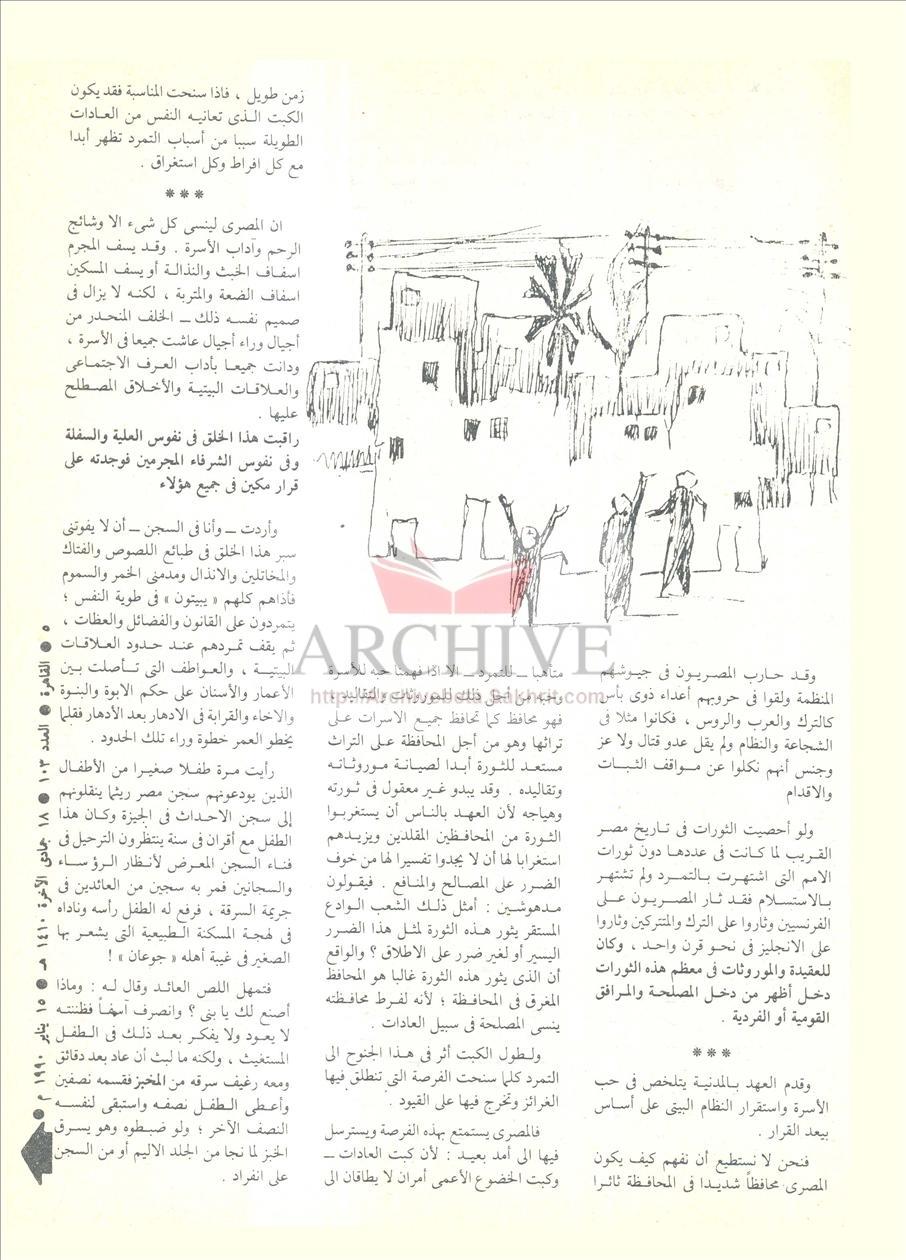 وقد حارب المصريون فى جيوشهم
المنظمة ولقوا فى حروبهم أعداء ذوى بأس
كالترك والعرب والروس ، فكانوا مثلا فى
الشجاعة والنظام ولم يقل عدو قتال ولا عز
وجنس أنهم نكلوا عن مواقف الثبات
والاقدام
ولو أحصيت الثورات فى تاريخ مصر
القريب لما كانت فى عددها دون ثورات
الامم التى اشتهرت بالتمرد ولم تشتهر
بالاستسلام فقد ثار المصريون على
الفرنسيين وثاروا على الترك والمتتركين وثاروا
على الانجليز فى نحو قرن واحد ، وكان
للعقيدة والموروثات فى معظم هذه الثورات
دخل أظهر من دخل المصلحة والمرافق
القومية أو الفردية .
***
وقدم العهد بالمدنية يتلخص فى حب
الأسرة واستقرار النظام البيتى على أساس
بيعد القرار .
فنحن لا نستطيع أن نفهم كيف يكون
المصرى محافظاً شديدا فى المحافظة ثائرا
متأهبا ــ للتمرد ــ الا اذا فهمنا حبه للأسرة
وحبه من أجل ذلك للموروثات والتقاليد .
فهو محافظ كما تحافظ جميع الاسرات على
تراثها وهو من أجل المحافظة على التراث
مستعد للثورة أبدا لصيانة موروثاته
وتقاليده . وقد يبدو غير معقول فى ثورته
وهياجه لأن العهد بالناس أن يستغربوا
الثورة من المحافظين المقلدين ويزيدهم
استغرابا لها أن لا يجدوا تفسيرا لها من خوف
الضرر على المصالح والمنافع . فيقولون
مدهوشين : أمثل ذلك الشعب الوادع
المستقر يثور هذه الثورة لمثل هذا الضرر
اليسير أو لغير ضرر على الاطلاق ؟ والواقع
أن الذى يثور هذه الثورة غالبا هو المحافظ
المغرق فى المحافظة ؛ لأنه لفرط محافظته
ينسى المصلحة فى سبيل العادات .
ولطول الكبت أثر فى هذا الجنوح الى
التمرد كلما سنحت الفرصة التى تنطلق فيها
الغرائز وتخرج فيها على القيود .
فالمصرى يستمتع بهذه الفرصة ويسترسل
فيها الى أمد بعيد : لأن كبت العادات ــ
وكبت الخضوع الأعمى أمران لا يطاقان الى
زمن طويل ، فاذا سنحت المناسبة فقد يكون
الكبت الذى تعانيه النفس من العادات
الطويلة سببا من أسباب التمرد تظهر أبدا
مع كل افراط وكل استغراق .
***
ان المصرى لينسى كل شىء الا وشائج
الرحم وآداب الأسرة . وقد يسف المجرم
اسفاف الخبث والنذالة أو يسف المسكين
اسفاف الضعة والمتربة ، لكنه لا يزال فى
صميم نفسه ذلك ــ الخلف المنحدر من
أجيال وراء أجيال عاشت جميعا فى الأسرة ،
ودانت جميعا بآداب العرف الاجتماعى
والعلاقات البيتية والأخلاق المصطلح
عليها .
راقبت هذا الخلق فى نفوس العلية والسفلة
وفى نفوس الشرفاء المجرمين فوجدته على
قرار مكين فى جميع هؤلاء
وأردت ــ وأنا فى السجن ــ أن لا يفوتنى
سبر هذا الخلق فى طبائع اللصوص والفتاك
والمخاتلين والانذال ومدمنى الخمر والسموم
فأذاهم كلهم « يبيتون » فى طوية النفس ؛
يتمردون على القانون والفضائل والعظات ،
ثم يقف تمردهم عند حدود العلاقات
البيتية ، والعواطف التى تأصلت بين
الأعمار والأسنان على حكم الابوة والبنوة
والاخاء والقرابة فى الادهار بعد الأدهار فقلما
يخطو العمر خطوة وراء تلك الحدود .
رأيت مرة طفلا صغيرا من الأطفال
الذين يودعونهم سجن مصر ريثما ينقلونهم
إلى سجن الاحداث فى الجيزة وكان هذا
الطفل مع أقران فى سنة ينتظرون الترحيل فى
فناء السجن المعرض لأنظار الرؤساء
والسجانين فمر به سجين من العائدين فى
جريمة السرقة ، فرفع له الطفل رأسه وناداه
فى لهجة المسكنة الطبيعية التى يشعر بها
الصغير فى غيبة أهله « جوعان » !
فتمهل اللص العائد وقال له : وماذا
أصنع لك يا بنى ؟ وانصرف آسفاً فظننته
لا يعود ولا يفكر بعد ذلك فى الطفل
المستغيث ، ولكنه ما لبث أن عاد بعد دقائق
ومعه رغيف سرقه من المخبز فقسمه نصفين
وأعطى الطفل نصفه واستبقى لنفسه
النصف الآخر ؛ ولو ضبطوه وهو يسرق
الخبز لما نجا من الجلد الاليم أو من السجن
على انفراد .
٥ ● القاهرة ● العدد ١٠٣ ● ١٨ جمادى الآخرة ١٤١٠ هـ ● ١٥ يناير ١٩٩٠ م ●
ARCHIVE
http://Archivebeta.Sakhrit.com